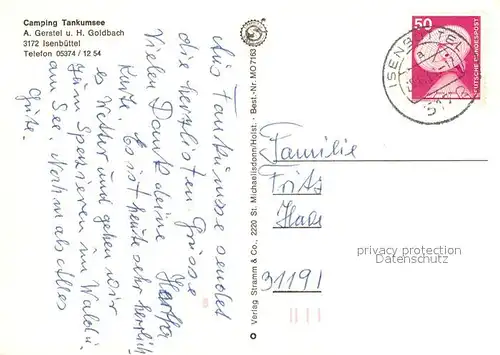 Camping Tankumsee
A. Gerstel u. H. Goldbach
3172 Isenbüttel
Telefon 05374 / 12 54
Aus Tankumsee sendet
die herzlisten Grüsse
Vielen Dank deine
Karte. Es ist heute sehr herrlich
es Wetter und gehen wir
zum Spazieren im Wald u.
am See. Nochmals alles
Gute.
Verlag Stramm & Co., 2220 St. Michaelisdonn/Holst. · Best.-Nr. MO 7163
50
DEUTSCHE BUNDESPOST
ISENBÜTTEL
Familie
Fritz
31191
privacy protection
Datenschutz